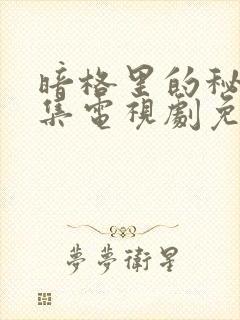 暗格里的秘
集電視劇免
夢夢衛星